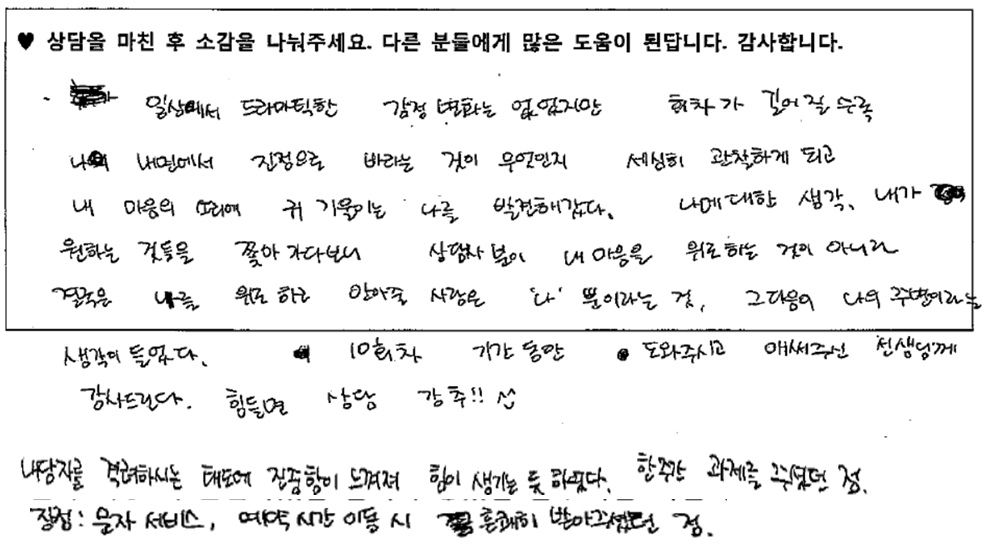 ♥ 상담을 마친 후 소감을 나눠주세요. 다른 분들에게 많은 도움이 된답니다. 감사합니다.
일상에서 드라마틱한 감정 변화는 없었지만 회차가 길어질수록
나의 내면에서 진정으로 바라는 것이 무엇인지 세심히 관찰하게 되고
내 마음의 소리에 귀 기울이는 나를 발견해갔다. 나에 대한 생각, 내가
원하는 것들을 쫓아 가다보니 상담사 분이 내 마음을 위로하는 것이 아니라
결국은 나를 위로하고 안아줄 사람은 '나' 뿐이라는 것, 그 다음이 나의 주변이라는
생각이 들었다. 10회차 기간 동안 도와주시고 애써주신 선생님께
감사드린다. 힘들면 상담 강추!!
내담자를 격려하시는 태도에 진중함이 느껴져 힘이 생기는 듯 하였다. 한 주간 과제를 주셨던 점.
장점: 문자 서비스, 예약 시간 이동 시 흔쾌히 받아주셨던 점.